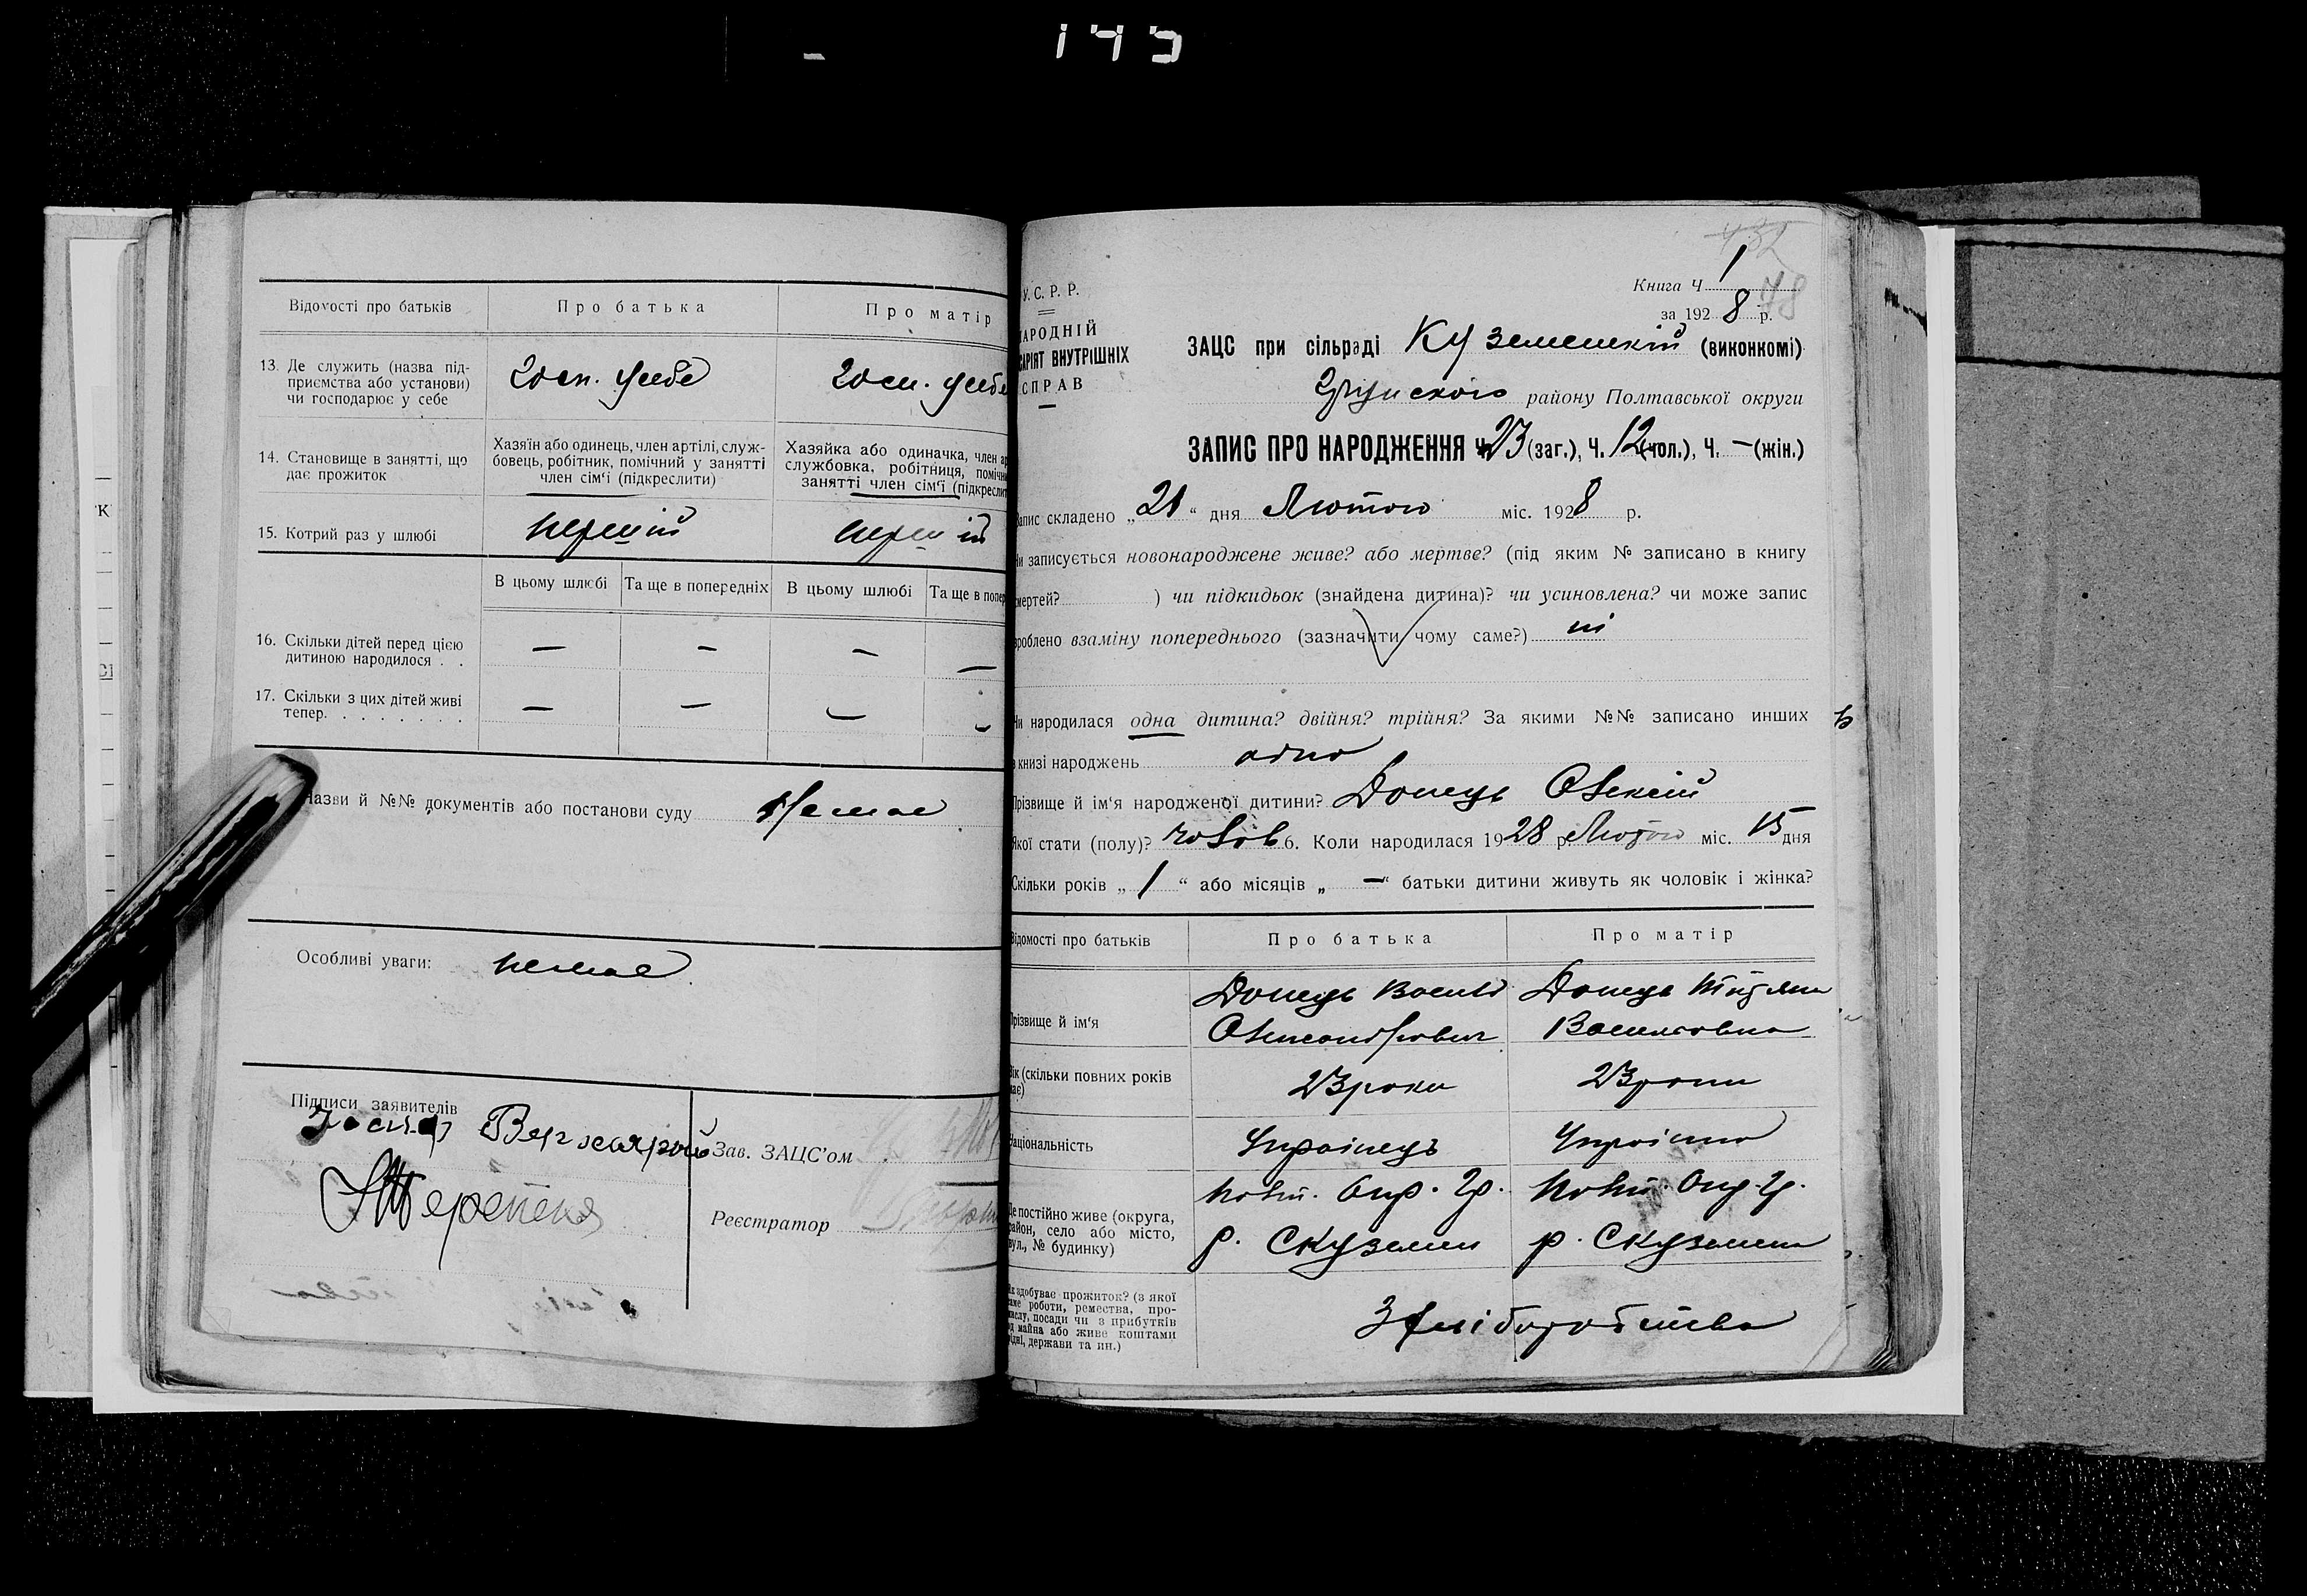 143
Відомості про батьків
Про батька
Про матір
13. Де служить (назва під-
приємства або установи)
чи господарює у себе
Госп. у себе
Госп. у себе
14. Становище в занятті, що
дає прожиток
Хазяїн або одинець, член артілі, служ-
бовець, робітник, помічний у занятті
член сім'ї (підкреслити)
Хазяйка або одиначка, член
службовка, робітниця,
занятті член сім'ї
15. Котрий раз у шлюбі
перший
перший
В цьому шлюбі
Та ще в попередніх
В цьому шлюбі
Та ще в
16. Скільки дітей перед цією
дитиною народилося . .
— — — —
17. Скільки з цих дітей живі
тепер. . . . . . . .
— — — —
Назви й №№ документів або постанови суду Немає
Особливі уваги: немає
Підписи заявителів
Зав. ЗАЦС'ом
Реєстратор
У. С. Р. Р.
НАРОДНІЙ
ВНУТРІШНІХ
СПРАВ
Книга Ч. 1
78
за 1928 р.
ЗАЦС при сільраді Куземенкій (виконкомі)
Грунського району Полтавської округи
ЗАПИС ПРО НАРОДЖЕННЯ Ч. 23 (заг.), Ч. 12 (чол.), Ч. — (жін.)
Запис складено „21" дня Лютого міс. 1928 р.
Чи записується новонароджене живе? або мертве? (під яким № записано в книгу
смертей? ) чи підкидьок (знайдена дитина)? чи усиновлена? чи може запис
зроблено взаміну попереднього (зазначити чому саме?) ні
Чи народилася одна дитина? двійня? трійня? За якими №№ записано инших
в книзі народжень одно
Прізвище й ім'я народженої дитини? Донець Олексій
Якої стати (полу)? чолов 6. Коли народилася 1928 р. Лютого міс. 15 дня
Скільки років „1" або місяців „—" батьки дитини живуть як чоловік і жінка?
Відомості про батьків
Про батька
Про матір
Прізвище й ім'я
Донець Василь
Олександрович
Донець Тетяна
Василовна
Вік (скільки повних років
має)
23 роки
23 роки
Національність
Українець
Українка
Де постійно живе (округа,
район, село або місто,
вул., № будинку)
Полт. Окр. Гр.
р. С Куземен
Полт. Окр. Гр.
р. С Куземени
Як здобуває прожиток? (з якої
саме роботи, ремества, про-
мислу, посади чи з прибутків
од майна або живе коштами
рідні, держави та ин.)
З хліборобства